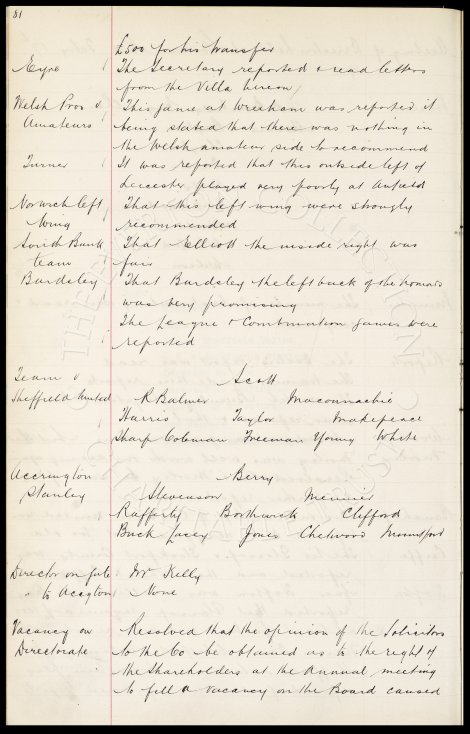 81
£500 for his transfer
Eyre The Secretary reported & read letters
from the Villa hereon
Welsh Pros v This game at Wrexham was reported it
Amateurs being stated that there was nothing in
the Welsh amateur side to recommend
Turner It was reported that this outside left of
Leicester played very poorly at Anfield
Norwich left That this left wing were strongly
Wing recommended
South Bank That Elliott the inside right was
team fair
Bardsley That Bardsley the left back of the Nomads
was very promising
The League & Combination games were
reported
Team v Scott
Sheffield United R Balmer Macconnachie
Harris Taylor Makepeace
Sharp Coleman Freeman Young White
Accrington Berry
Stanley Stevenson Meunier
Rafferty Borthwick Clifford
Buck Lacey Jones Chetwood Mountford
Director on gate Mr Kelly
" to Accgton None
Vacancy on Resolved that the opinion of the Solicitors
Directorate to the Co be obtained as to the right of
the Shareholders at the Annual meeting
to fill a vacancy on the Board caused